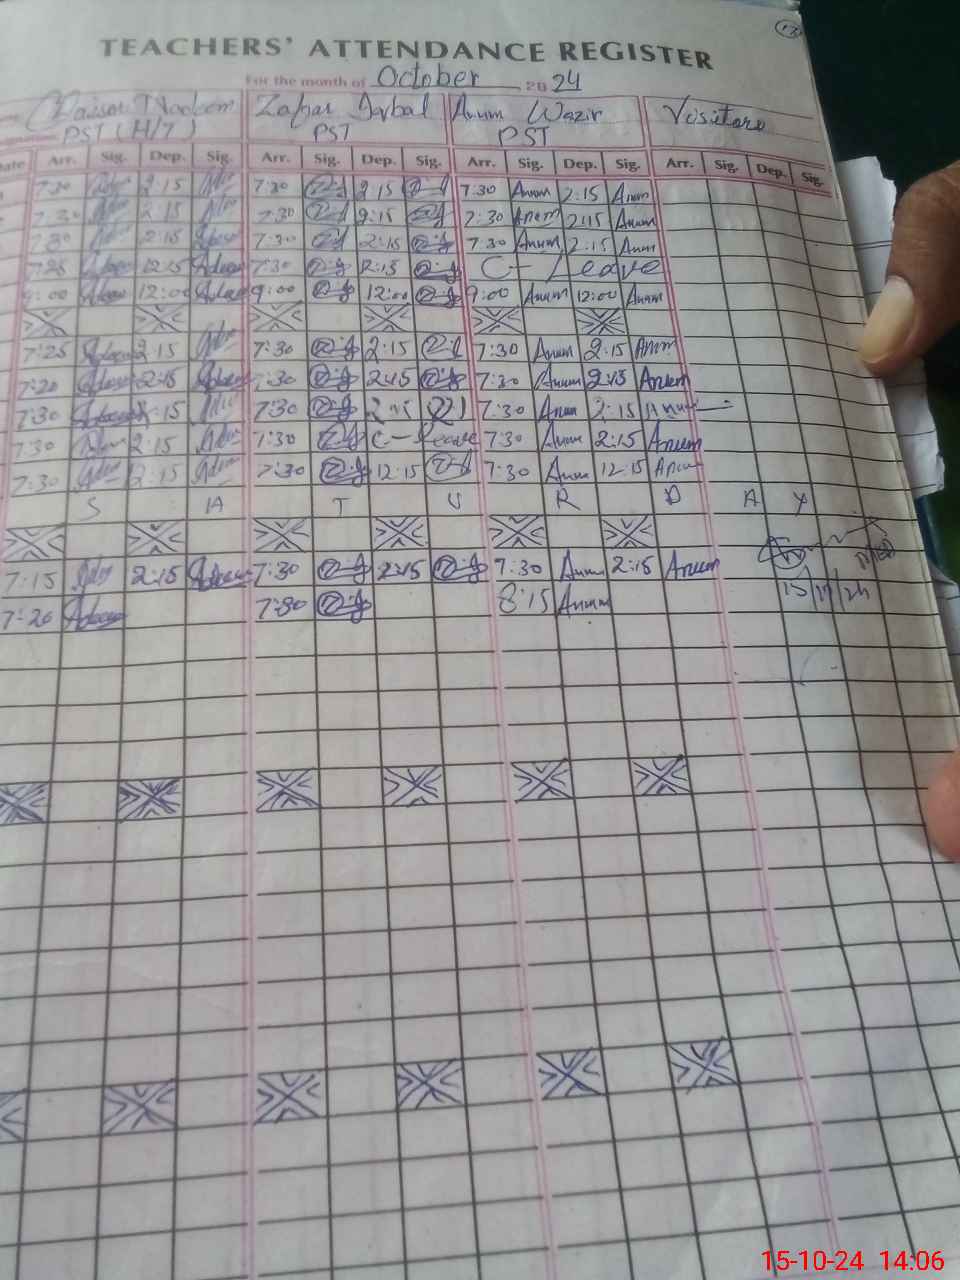 13
TEACHERS' ATTENDANCE REGISTER
For the month of October 2024
Nadeem Zafar Iqbal Anum Wazir Visitors
PST (H/T) PST PST
Date Arr. Sig. Dep. Sig. Arr. Sig. Dep. Sig. Arr. Sig. Dep. Sig. Arr. Sig. Dep. Sig.
7:30 2:15 7:30 2:15 7:30 Anum 2:15 Anum
7:30 2:15 7:30 2:15 7:30 Anum 2:15 Anum
7:30 2:15 7:30 2:15 7:30 Anum 2:15 Anum
7:25 12:15 7:30 12:15 C- Leave
9:00 12:00 9:00 12:00 9:00 Anum 12:00 Anum
7:25 2:15 7:30 2:15 7:30 Anum 2:15 Anum
7:20 2:15 7:30 2:15 7:30 Anum 2:15 Anum
7:30 2:15 7:30 2:15 7:30 Anum 2:15 Anum
7:30 2:15 7:30 C- Leave 7:30 Anum 2:15 Anum
7:30 12:15 7:30 12:15 7:30 Anum 12:15 Anum
S A T U R D A Y
7:15 2:15 7:30 2:15 7:30 Anum 2:15 Anum
7:20 7:30 8:15 Anum
15/10/24
15-10-24 14:06